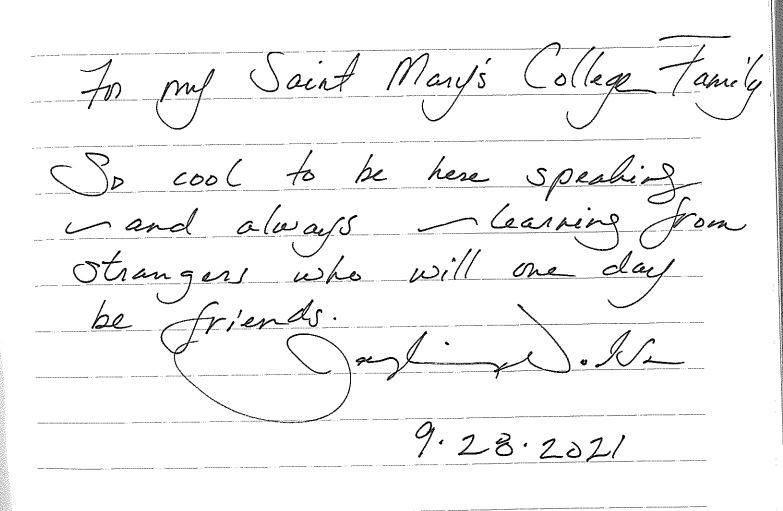 For my Saint Mary's College Family
So cool to be here speaking
— and always — learning from
strangers who will one day
be friends.
9.28.2021